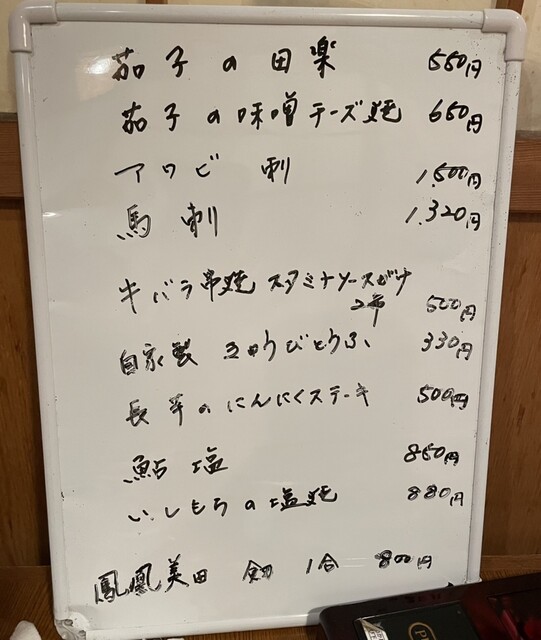 茄子の田楽 550円
茄子の味噌チーズ焼 650円
アワビ刺 1,500円
馬刺 1,320円
牛バラ串焼 スタミナソースだれ
2本 500円
自家製 ぎゅうひとうふ 330円
長芋のにんにくステーキ 500円
鮎塩 850円
いしもちの塩焼 880円
鳳凰美田 剱 1合 800円